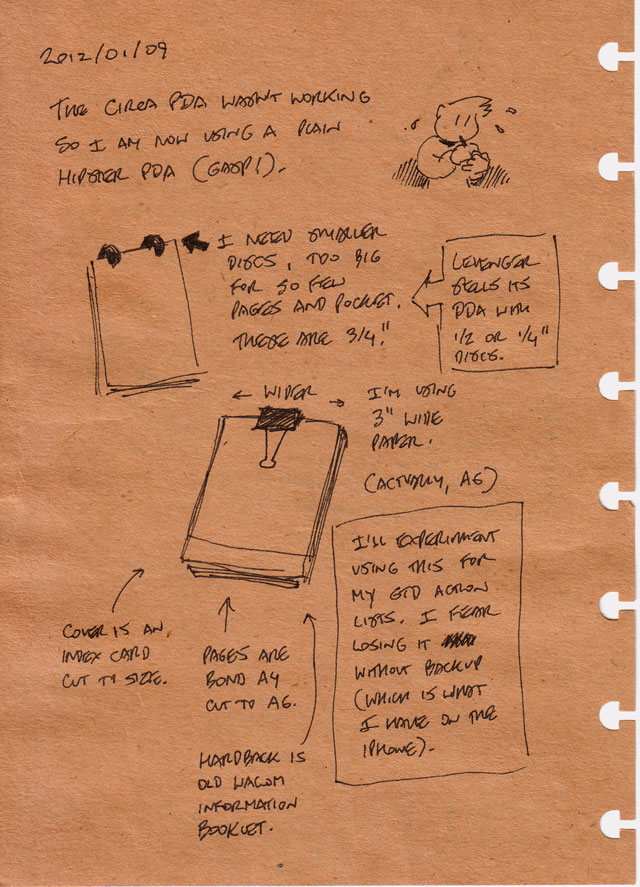 2012/01/09
THE CIRCA PDA WASN'T WORKING
SO I AM NOW USING A PLAIN
HIPSTER PDA (GASP!).
I NEED SMALLER
DISCS, TOO BIG
FOR SO FEW
PAGES AND POCKET.
THESE ARE 3/4."
LEVENGER
SELLS ITS
PDA WITH
1/2 OR 1/4"
DISCS.
← WIDER →
I'M USING
3" WIDE
PAPER.
(ACTUALLY, A6)
I'LL EXPERIMENT
USING THIS FOR
MY GTD ACTION
LISTS. I FEAR
LOSING IT
WITHOUT BACKUP
(WHICH IS WHAT
I HAVE ON THE
IPHONE).
COVER IS AN
INDEX CARD
CUT TO SIZE.
PAGES ARE
BOND A4
CUT TO A6.
HARDBACK IS
OLD WACOM
INFORMATION
BOOKLET.